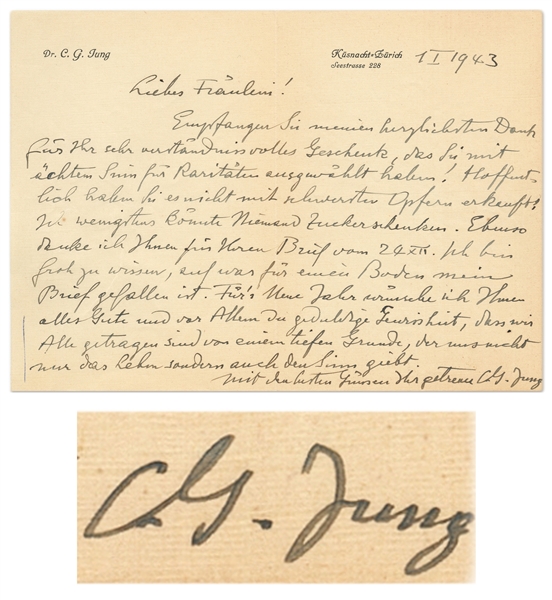 Dr. C. G. Jung
Küsnacht-Zürich
Seestrasse 228
1 I 1943
Liebes Fräulein!
Empfangen Sie meinen herzlichsten Dank
für Ihr sehr verständnisvolles Geschenk, das Sie mit
ächtem Sinn für Raritäten ausgewählt haben! Hoffent-
lich haben Sie es nicht mit schwersten Opfern erkauft!
Ich wenigstens könnte Niemand Zucker schenken. Ebenso
danke ich Ihnen für Ihren Brief vom 24 XII. Ich bin
froh zu wissen, auf was für einen Boden mein
Brief gefallen ist. Für's Neue Jahr wünsche ich Ihnen
alles Gute und vor Allem die geduldige Gewissheit, dass wir
Alle getragen sind von einem tiefen Grunde, der uns nicht
nur das Leben sondern auch den Sinn giebt.
Mit den besten Grüssen Ihr getreuer C. G. Jung
C. G. Jung